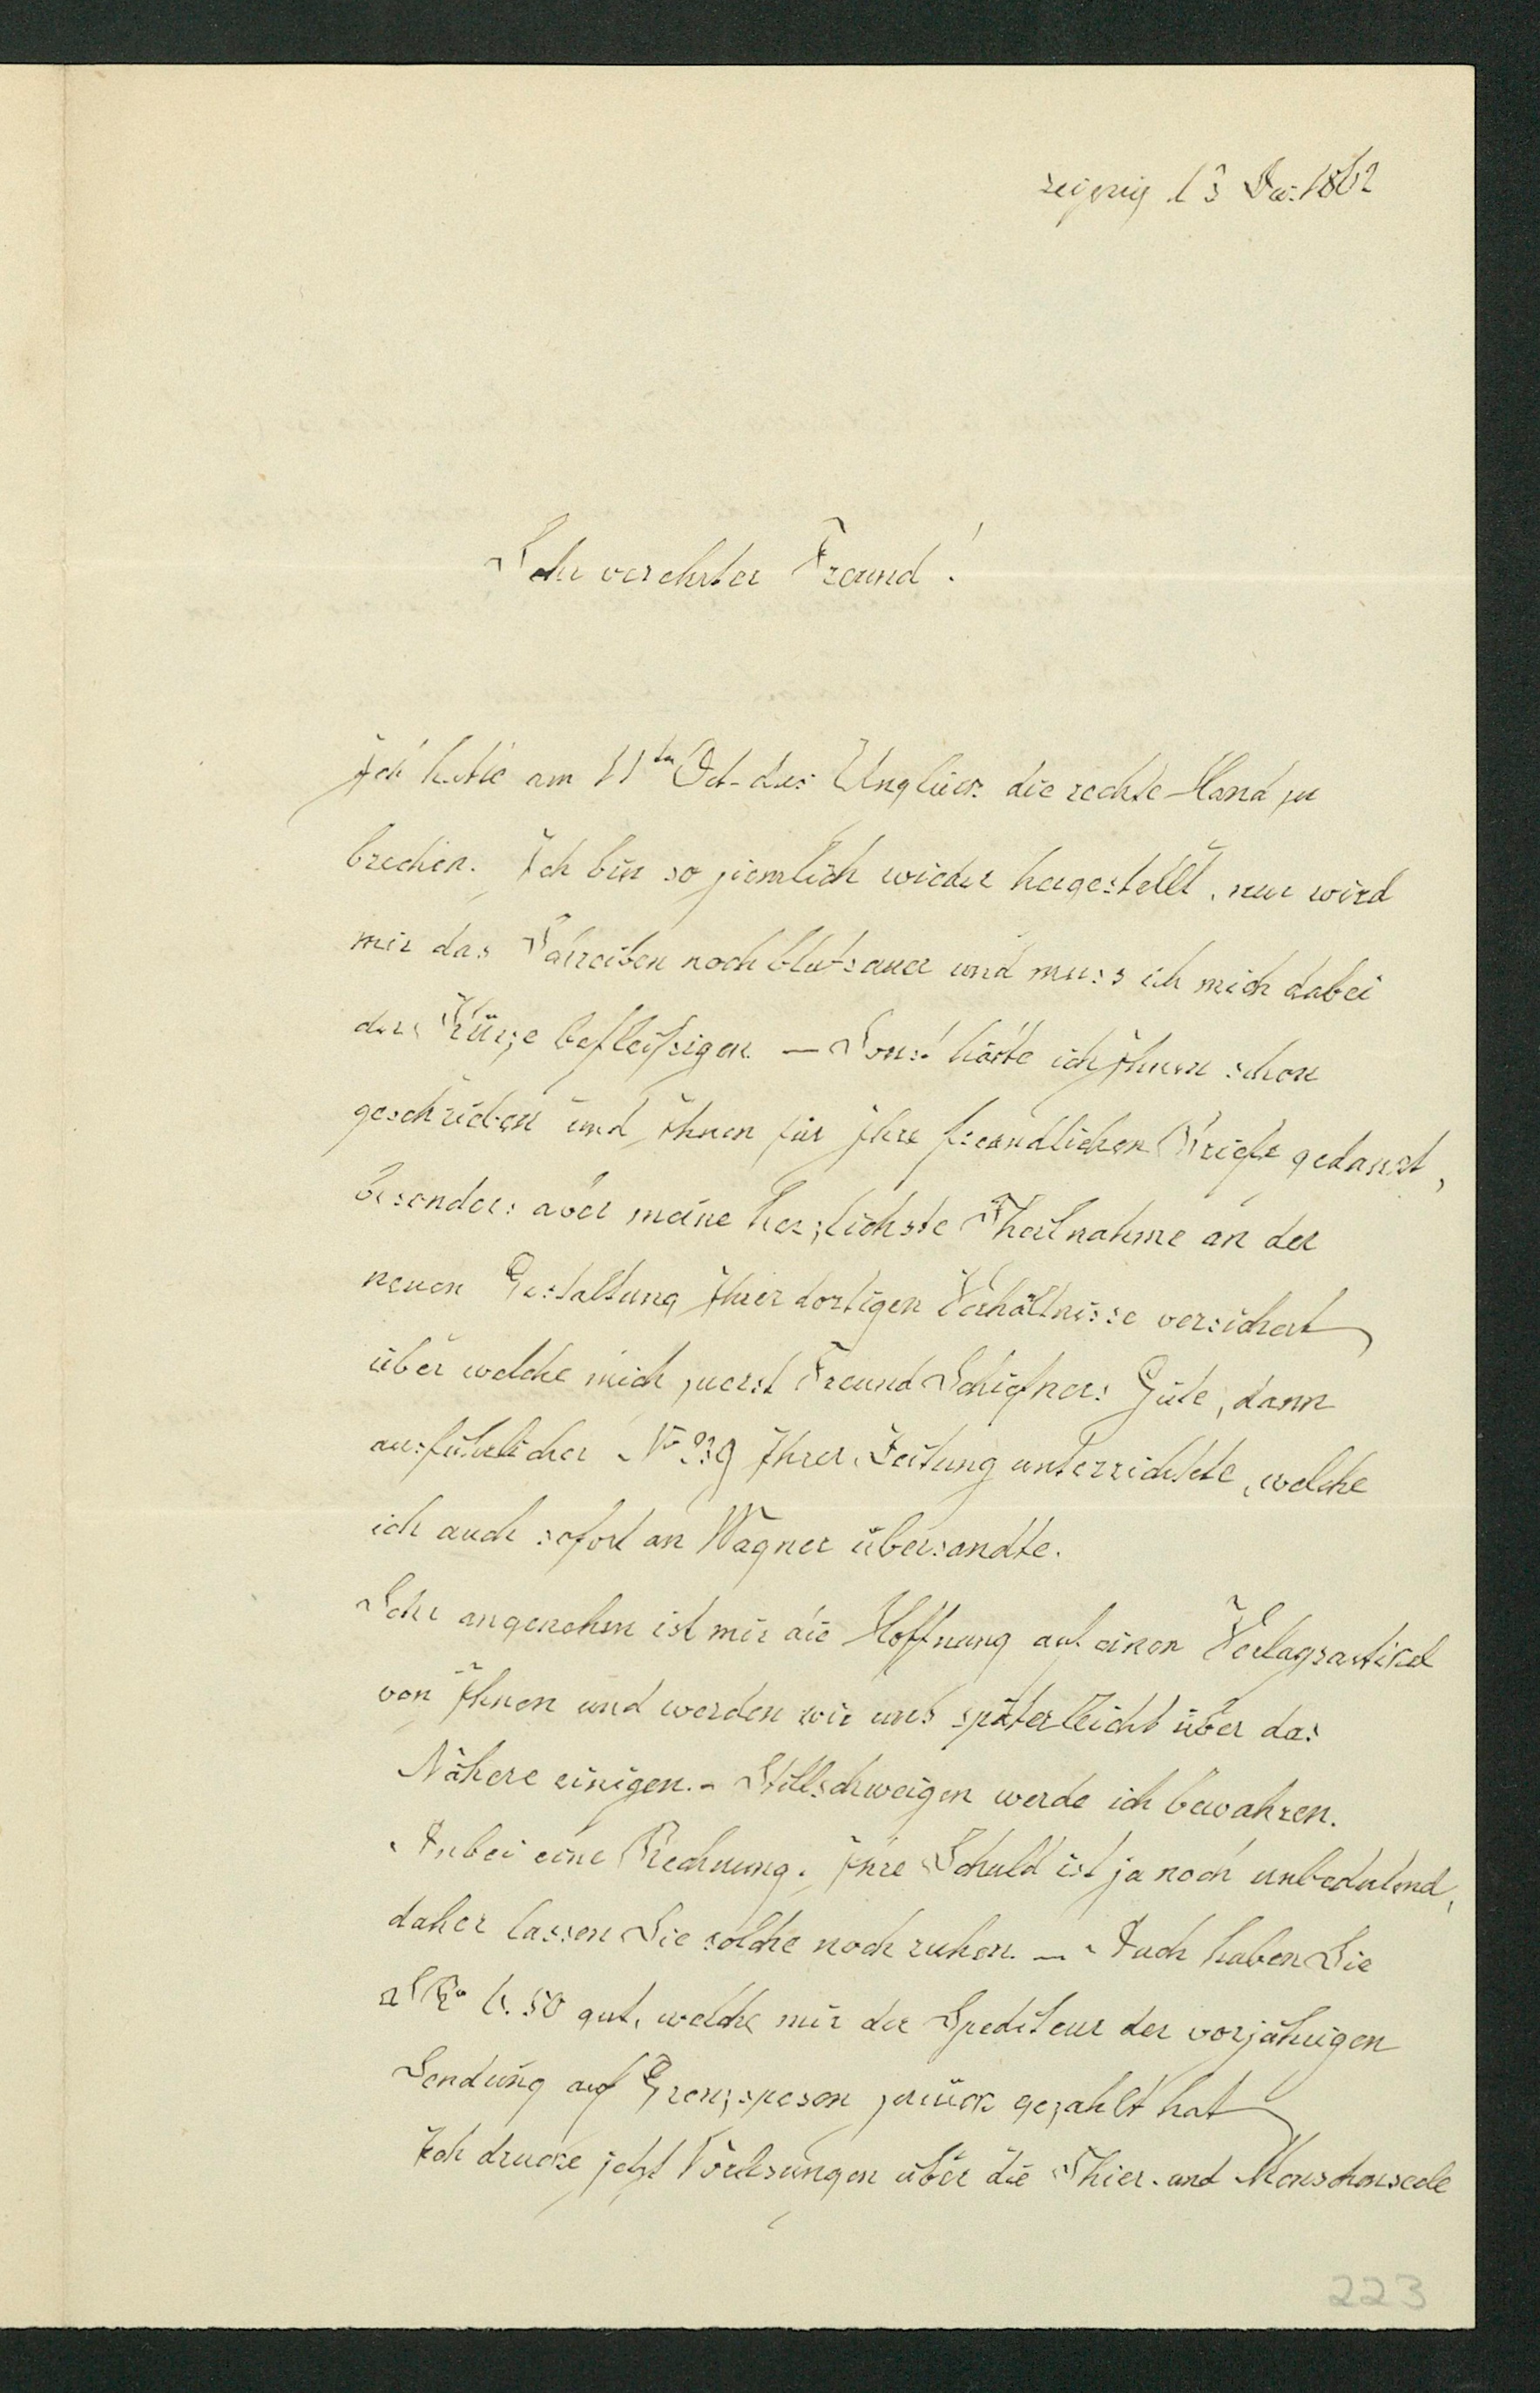 Leipzig 13 Dec. 1862
Sehr verehrter Freund!
Ich hatte am 11ten Oct. das Unglück die rechte Hand zu
brechen. Ich bin so ziemlich wieder hergestellt, nur wird
mir das Schreiben noch blutsauer und muss ich mich dabei
der Kürze befleißigen. — Sonst hätte ich Ihnen schon
geschrieben und Ihnen für Ihre freundlichen Briefe gedankt,
besonders aber meine herzlichste Theilnahme an der
neuen Gestaltung Ihrer dortigen Verhältnisse versichert
über welche mich zuerst Freund Schiefners Güte, dann
ausführlicher No 239 Ihrer Zeitung unterrichtete, welche
ich auch sofort an Wagner übersandte.
Sehr angenehm ist mir die Hoffnung auf einen Verlagsartikel
von Ihnen und werden wir uns später leicht über das
Nähere einigen. - Stillschweigen werde ich bewahren.
Anbei eine Rechnung. Ihre Schuld ist ja noch unbedeutend,
daher lassen Sie solche noch ruhen. — Auch haben Sie
6.50 gut, welche mir der Spediteur der vorjährigen
Sendung auf Grenzspesen zurück gezahlt hat
Ich drucke jetzt Vorlesungen über die Thier- und Menschenseele
223